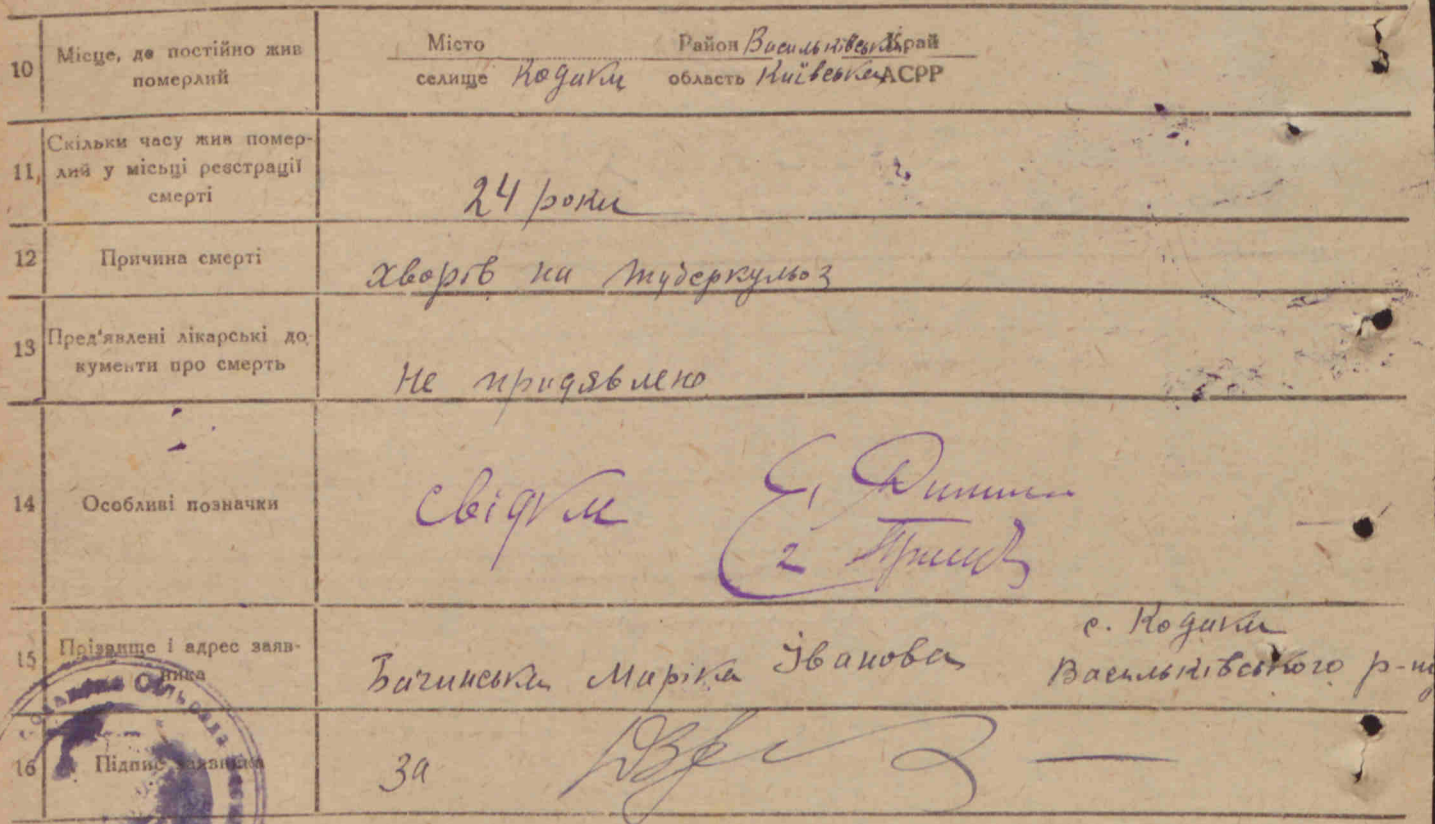 10 Місце, де постійно жив Місто Район Васильківськ. Край
померлий селище Кодаки область Київська АСРР
Скільки часу жив помер-
11, лий у місьці реєстрації
смерті 24 роки
12 Причина смерті хворів на туберкульоз
13 Пред'явлені лікарські до
кументи про смерть Не придявлено
14 Особливі позначки свідки 1
2
15 Прізвище і адрес заяв- Бачинська Маріка Іванова с. Кодаки
ника Васильківського р-ну
16 Підпис заявника за